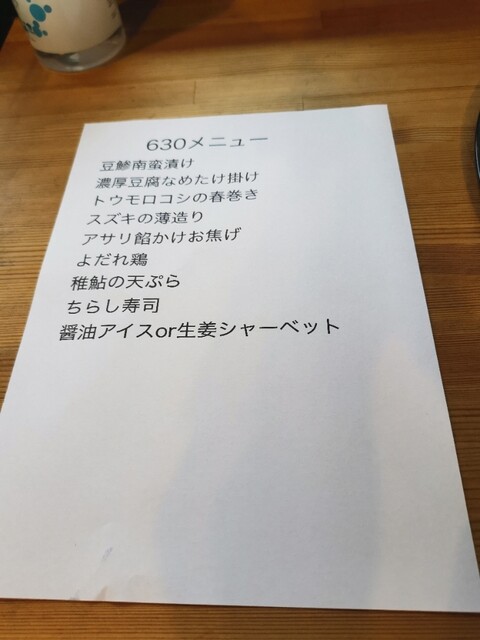 630メニュー
豆鯵南蛮漬け
濃厚豆腐なめたけ掛け
トウモロコシの春巻き
スズキの薄造り
アサリ餡かけお焦げ
よだれ鶏
稚鮎の天ぷら
ちらし寿司
醤油アイスor生姜シャーベット